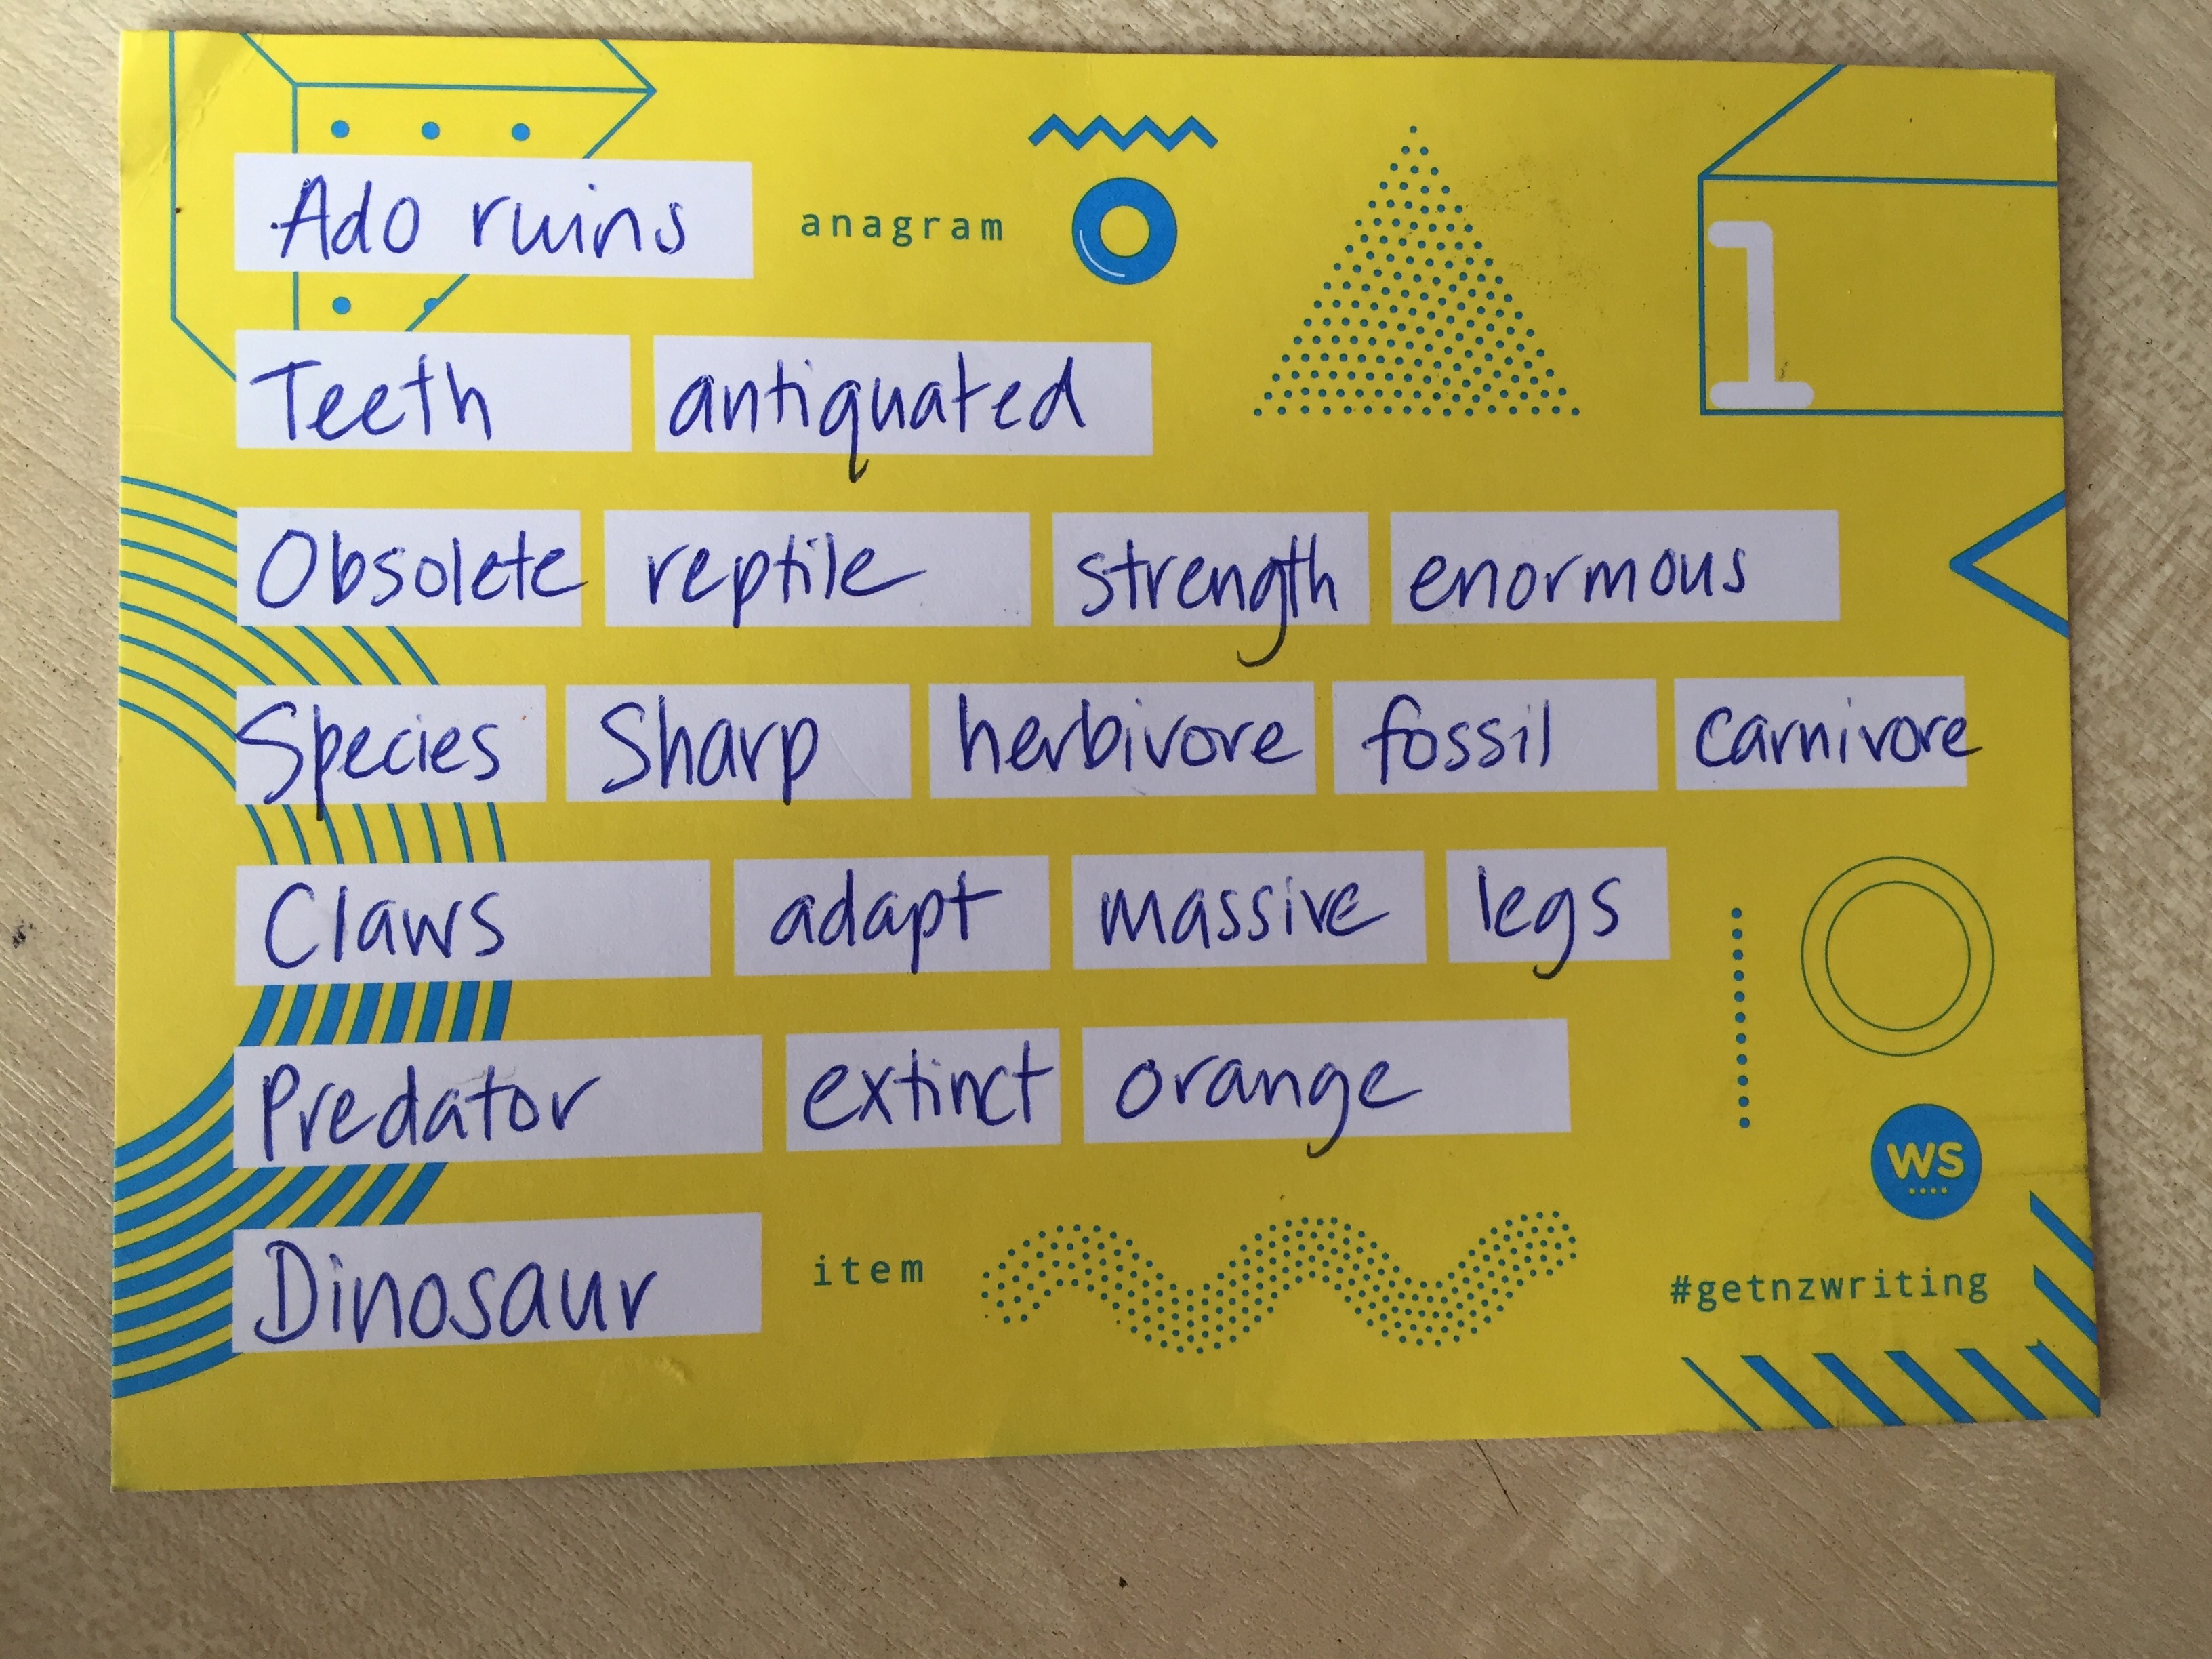 Ado ruins anagram
1
Teeth antiquated
Obsolete reptile strength enormous
Species Sharp herbivore fossil carnivore
Claws adapt massive legs
Predator extinct orange
WS
Dinosaur item
#getnzwriting